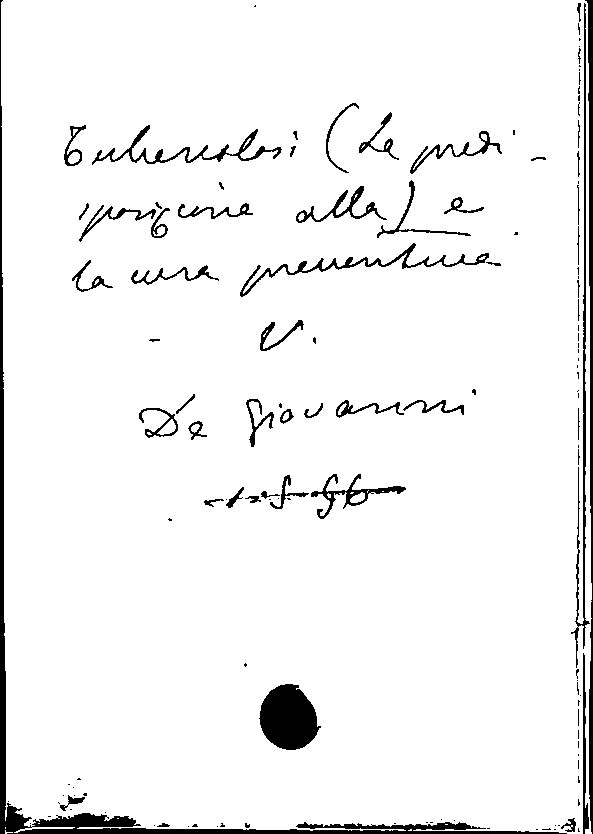 Tubercolosi (La predi-
sposizione alla) e
la cura preventiva
- V.
De Giovanni